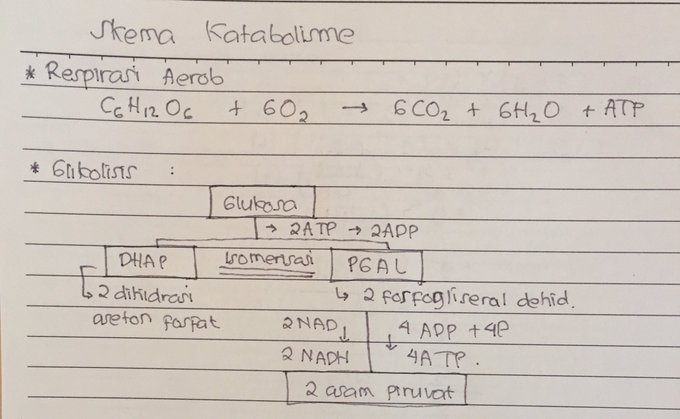 Skema Katabolisme
* Respirasi Aerob
C6H12O6 + 6O2 → 6CO2 + 6H2O + ATP
* Glikolisis :
Glukosa
→ 2ATP → 2ADP
DHAP Isomerisasi PGAL
↳ 2 dihidrasi ↳ 2 fosfogliseral dehid.
aseton fosfat 2NAD ↓ 4 ADP + 4P
2 NADH ↓ 4ATP.
2 asam piruvat